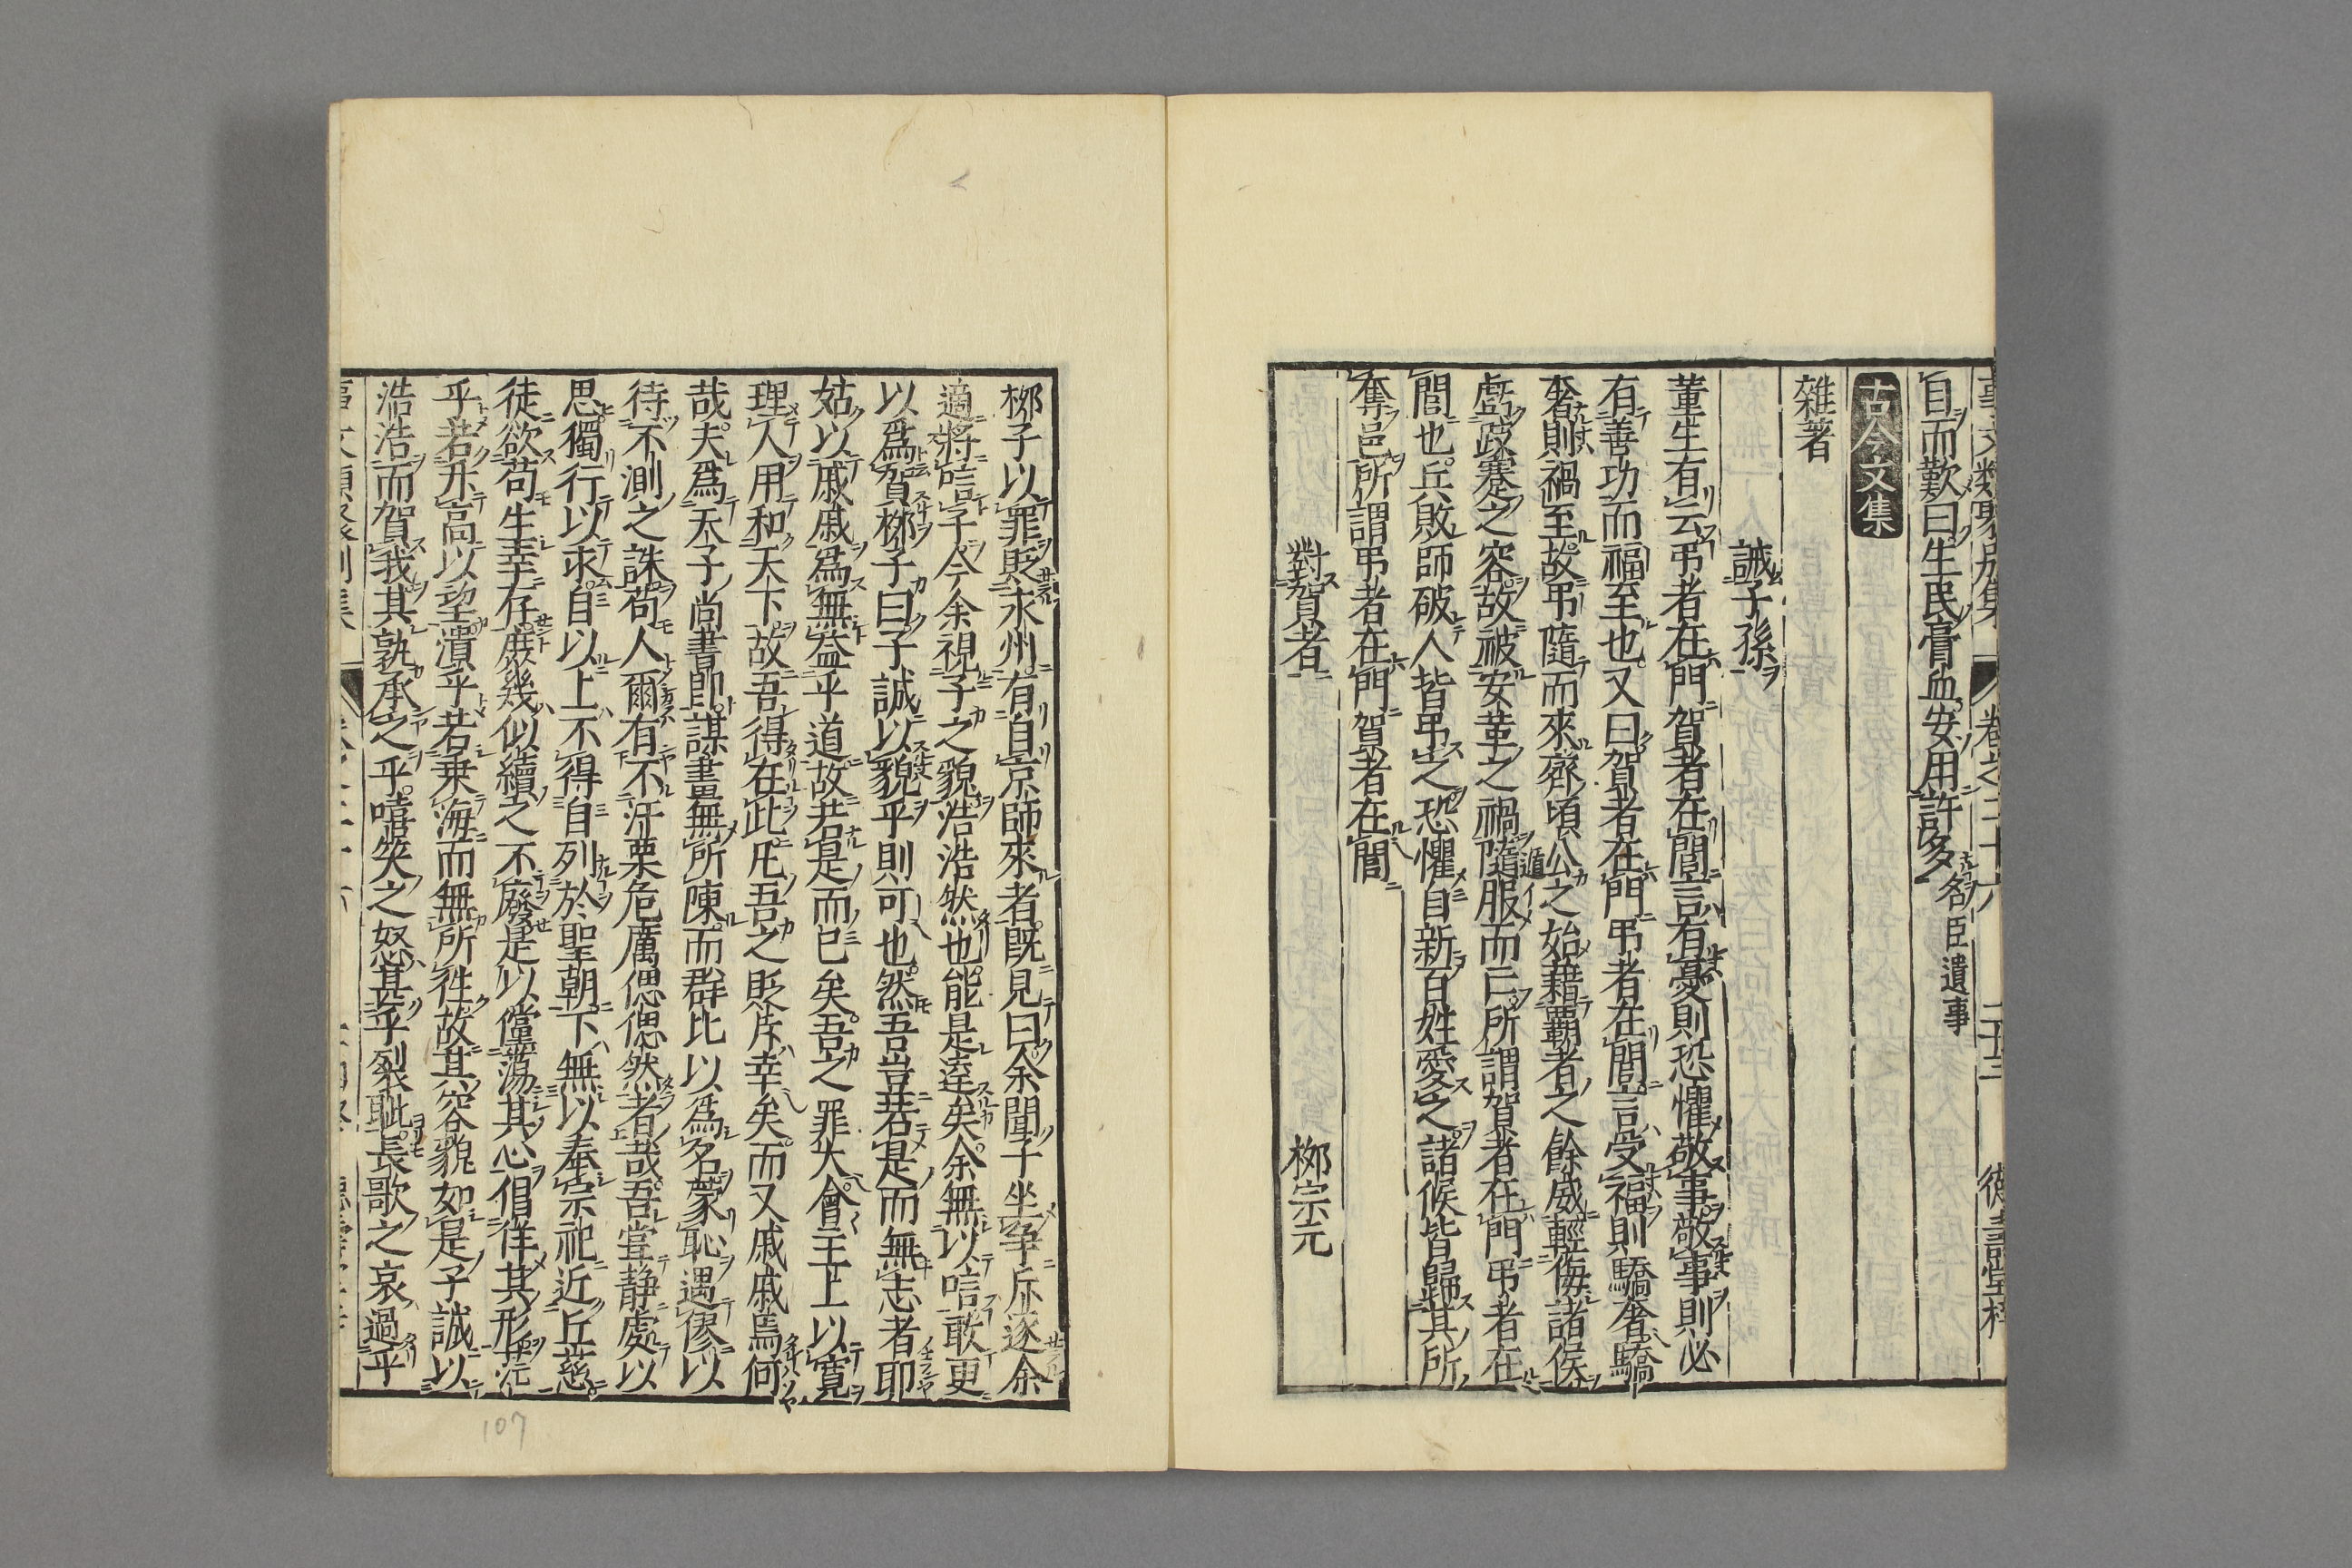 自而歎曰生民膏血安用許多 名臣遺事
古今文集
雜著
誡子孫
董生有云弔者在門賀者在閭言有憂則恐懼敬事敬事則必
有善功而福至也又曰賀者在門弔者在閭言受福則驕奢驕
奢則禍至故弔隨而來齊頃公之始藉霸者之餘威輕侮諸侯
虧跂蹇之容故被鞌之禍隨服而亡所謂賀者在門弔者在
閭也兵敗師破人皆弔之恐懼自新百姓愛之諸侯皆歸其所
奪邑所謂弔者在門賀者在閭
對賀者 柳宗元
柳子以罪貶永州有自京師來者既見曰余聞子坐事斥逐余
適將唁子今余視子之貌浩浩然也能是達矣余無以唁敢更
以爲賀柳子曰子誠以貌乎則可也然吾豈若是而無志者耶
姑以戚戚爲無益乎道故若是而已矣吾之罪大會主上以寬
理人用和天下故吾得在此凡吾之貶斥幸矣而又戚戚焉何
哉夫爲天子尚書郎謀畫無所陳而群比以爲名蒙恥遇僇以
待不測之誅苟人爾有不汗栗危厲偲偲然者哉吾嘗靜處以
思獨行以求自以上不得自列於聖朝下無以奉宗祀近丘墓
徒欲苟生幸存庶幾似續之不廢是以儻蕩其心倡佯其形茫
乎若升高以望潰乎若乘海而無所往故其容貌如是子誠以
浩浩而賀我其孰承之乎嘻笑之怒甚乎裂眦長歌之哀過乎